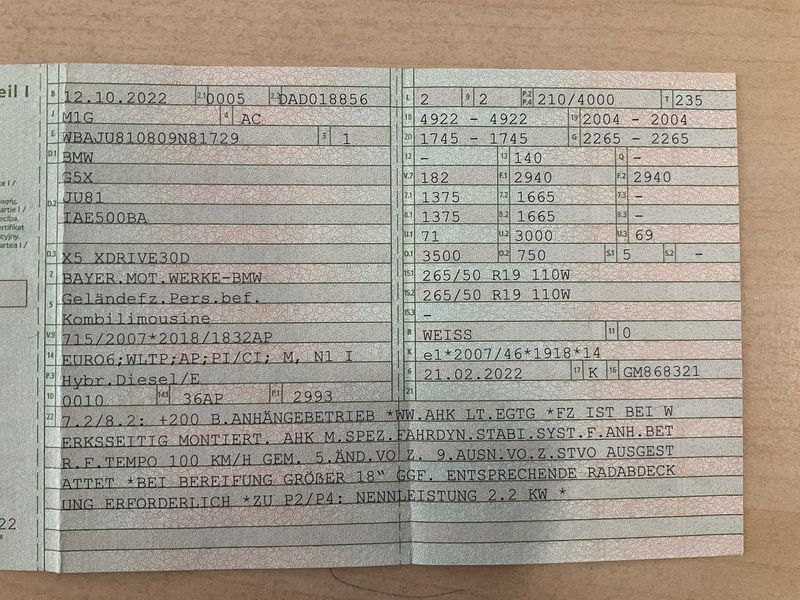 eil I
B 12.10.2022 2.1 0005 2.2 DAD018856
J M1G 4 AC
E WBAJU810809N81729 3 1
D.1 BMW
G5X
JU81
D.2 IAE500BA
D.3 X5 XDRIVE30D
2 BAYER.MOT.WERKE-BMW
5 Geländefz.Pers.bef.
Kombilimousine
V.9 715/2007*2018/1832AP
14 EURO6;WLTP;AP;PI/CI; M, N1 I
P.3 Hybr.Diesel/E
10 0010 14.1 36AP P.1 2993
L 2 9 2 P.2 P.4 210/4000 T 235
18 4922 - 4922 19 2004 - 2004
20 1745 - 1745 G 2265 - 2265
12 - 13 140 Q -
V.7 182 F.1 2940 F.2 2940
7.1 1375 7.2 1665 7.3 -
8.1 1375 8.2 1665 8.3 -
U.1 71 U.2 3000 U.3 69
O.1 3500 O.2 750 S.1 5 S.2 -
15.1 265/50 R19 110W
15.2 265/50 R19 110W
15.3 -
R WEISS 11 0
K e1*2007/46*1918*14
6 21.02.2022 17 K 16 GM868321
21
22 7.2/8.2: +200 B.ANHÄNGEBETRIEB *WW.AHK LT.EGTG *FZ IST BEI W
ERKSSEITIG MONTIERT. AHK M.SPEZ.FAHRDYN.STABI.SYST.F.ANH.BET
R.F.TEMPO 100 KM/H GEM. 5.ÄND.VO Z. 9.AUSN.VO.Z.STVO AUSGEST
ATTET *BEI BEREIFUNG GRÖßER 18“ GGF. ENTSPRECHENDE RADABDECK
UNG ERFORDERLICH *ZU P2/P4: NENNLEISTUNG 2.2 KW *
22